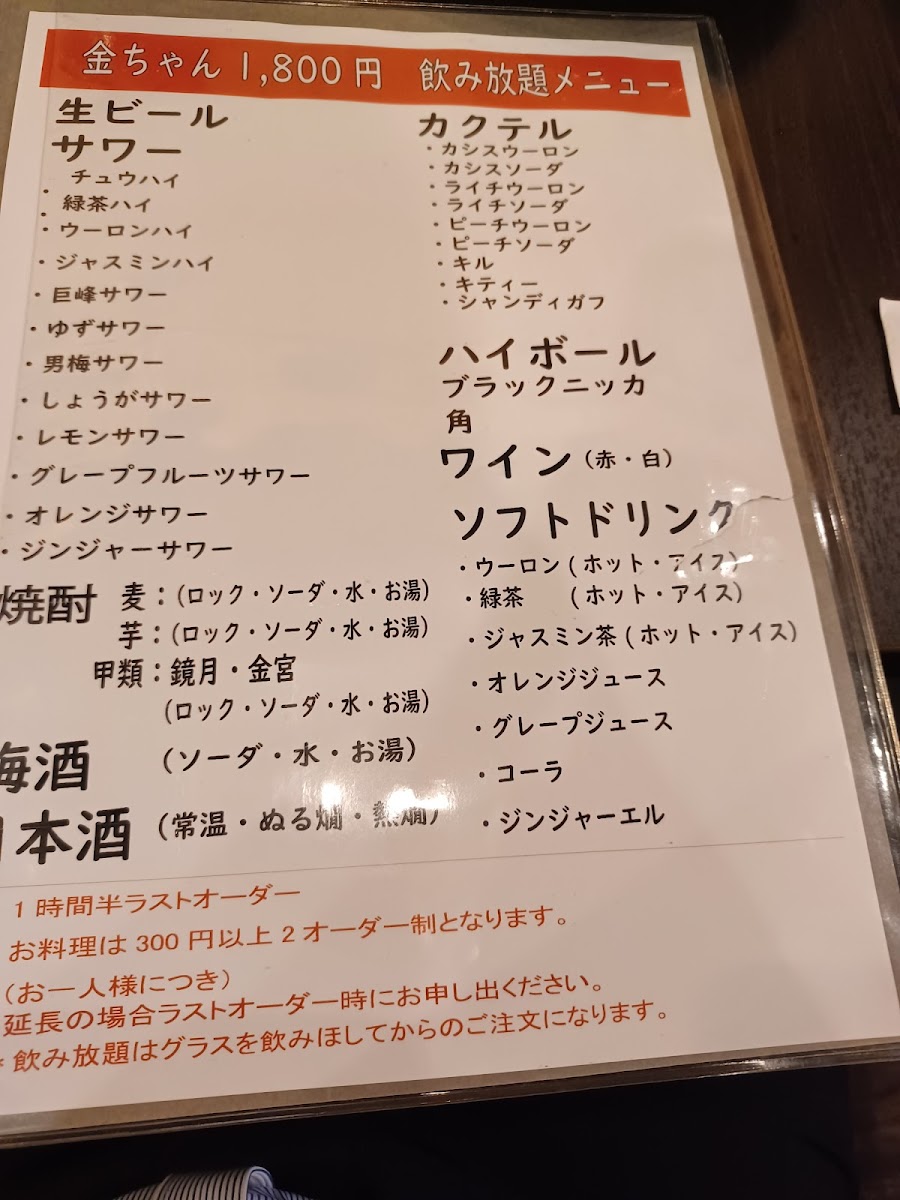 金ちゃん 1,800 円 飲み放題メニュー
生ビール
サワー
・チュウハイ
・緑茶ハイ
・ウーロンハイ
・ジャスミンハイ
・巨峰サワー
・ゆずサワー
・男梅サワー
・しょうがサワー
・レモンサワー
・グレープフルーツサワー
・オレンジサワー
・ジンジャーサワー
焼酎 麦：(ロック・ソーダ・水・お湯)
芋：(ロック・ソーダ・水・お湯)
甲類：鏡月・金宮
(ロック・ソーダ・水・お湯)
梅酒 (ソーダ・水・お湯)
日本酒 (常温・ぬる燗・熱燗)
カクテル
・カシスウーロン
・カシスソーダ
・ライチウーロン
・ライチソーダ
・ピーチウーロン
・ピーチソーダ
・キル
・キティー
・シャンディガフ
ハイボール
ブラックニッカ
角
ワイン (赤・白)
ソフトドリンク
・ウーロン (ホット・アイス)
・緑茶 (ホット・アイス)
・ジャスミン茶 (ホット・アイス)
・オレンジジュース
・グレープジュース
・コーラ
・ジンジャーエル
1 時間半ラストオーダー
お料理は 300 円以上 2 オーダー制となります。
(お一人様につき)
延長の場合ラストオーダー時にお申し出ください。
* 飲み放題はグラスを飲みほしてからのご注文になります。